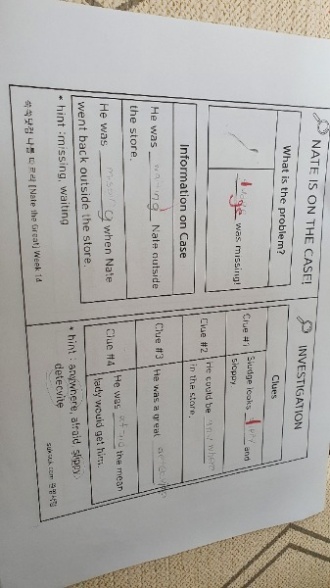 NATE IS ON THE CASE!
What is the problem?
was missing!
Information on Case
He was waiting Nate outside
the store.
He was missing when Nate
went back outside the store.
* hint :missing, waiting
[Nate the Great] Week 14
INVESTIGATION
Clues
Clue #1 Sludge looks and
sloppy.
Clue #2 He could be anywhere
in the store.
Clue #3 He was a great
Clue #4 He was afraid the mean
lady would get him.
* hint : anywhere, afraid, sloppy,
detecvite